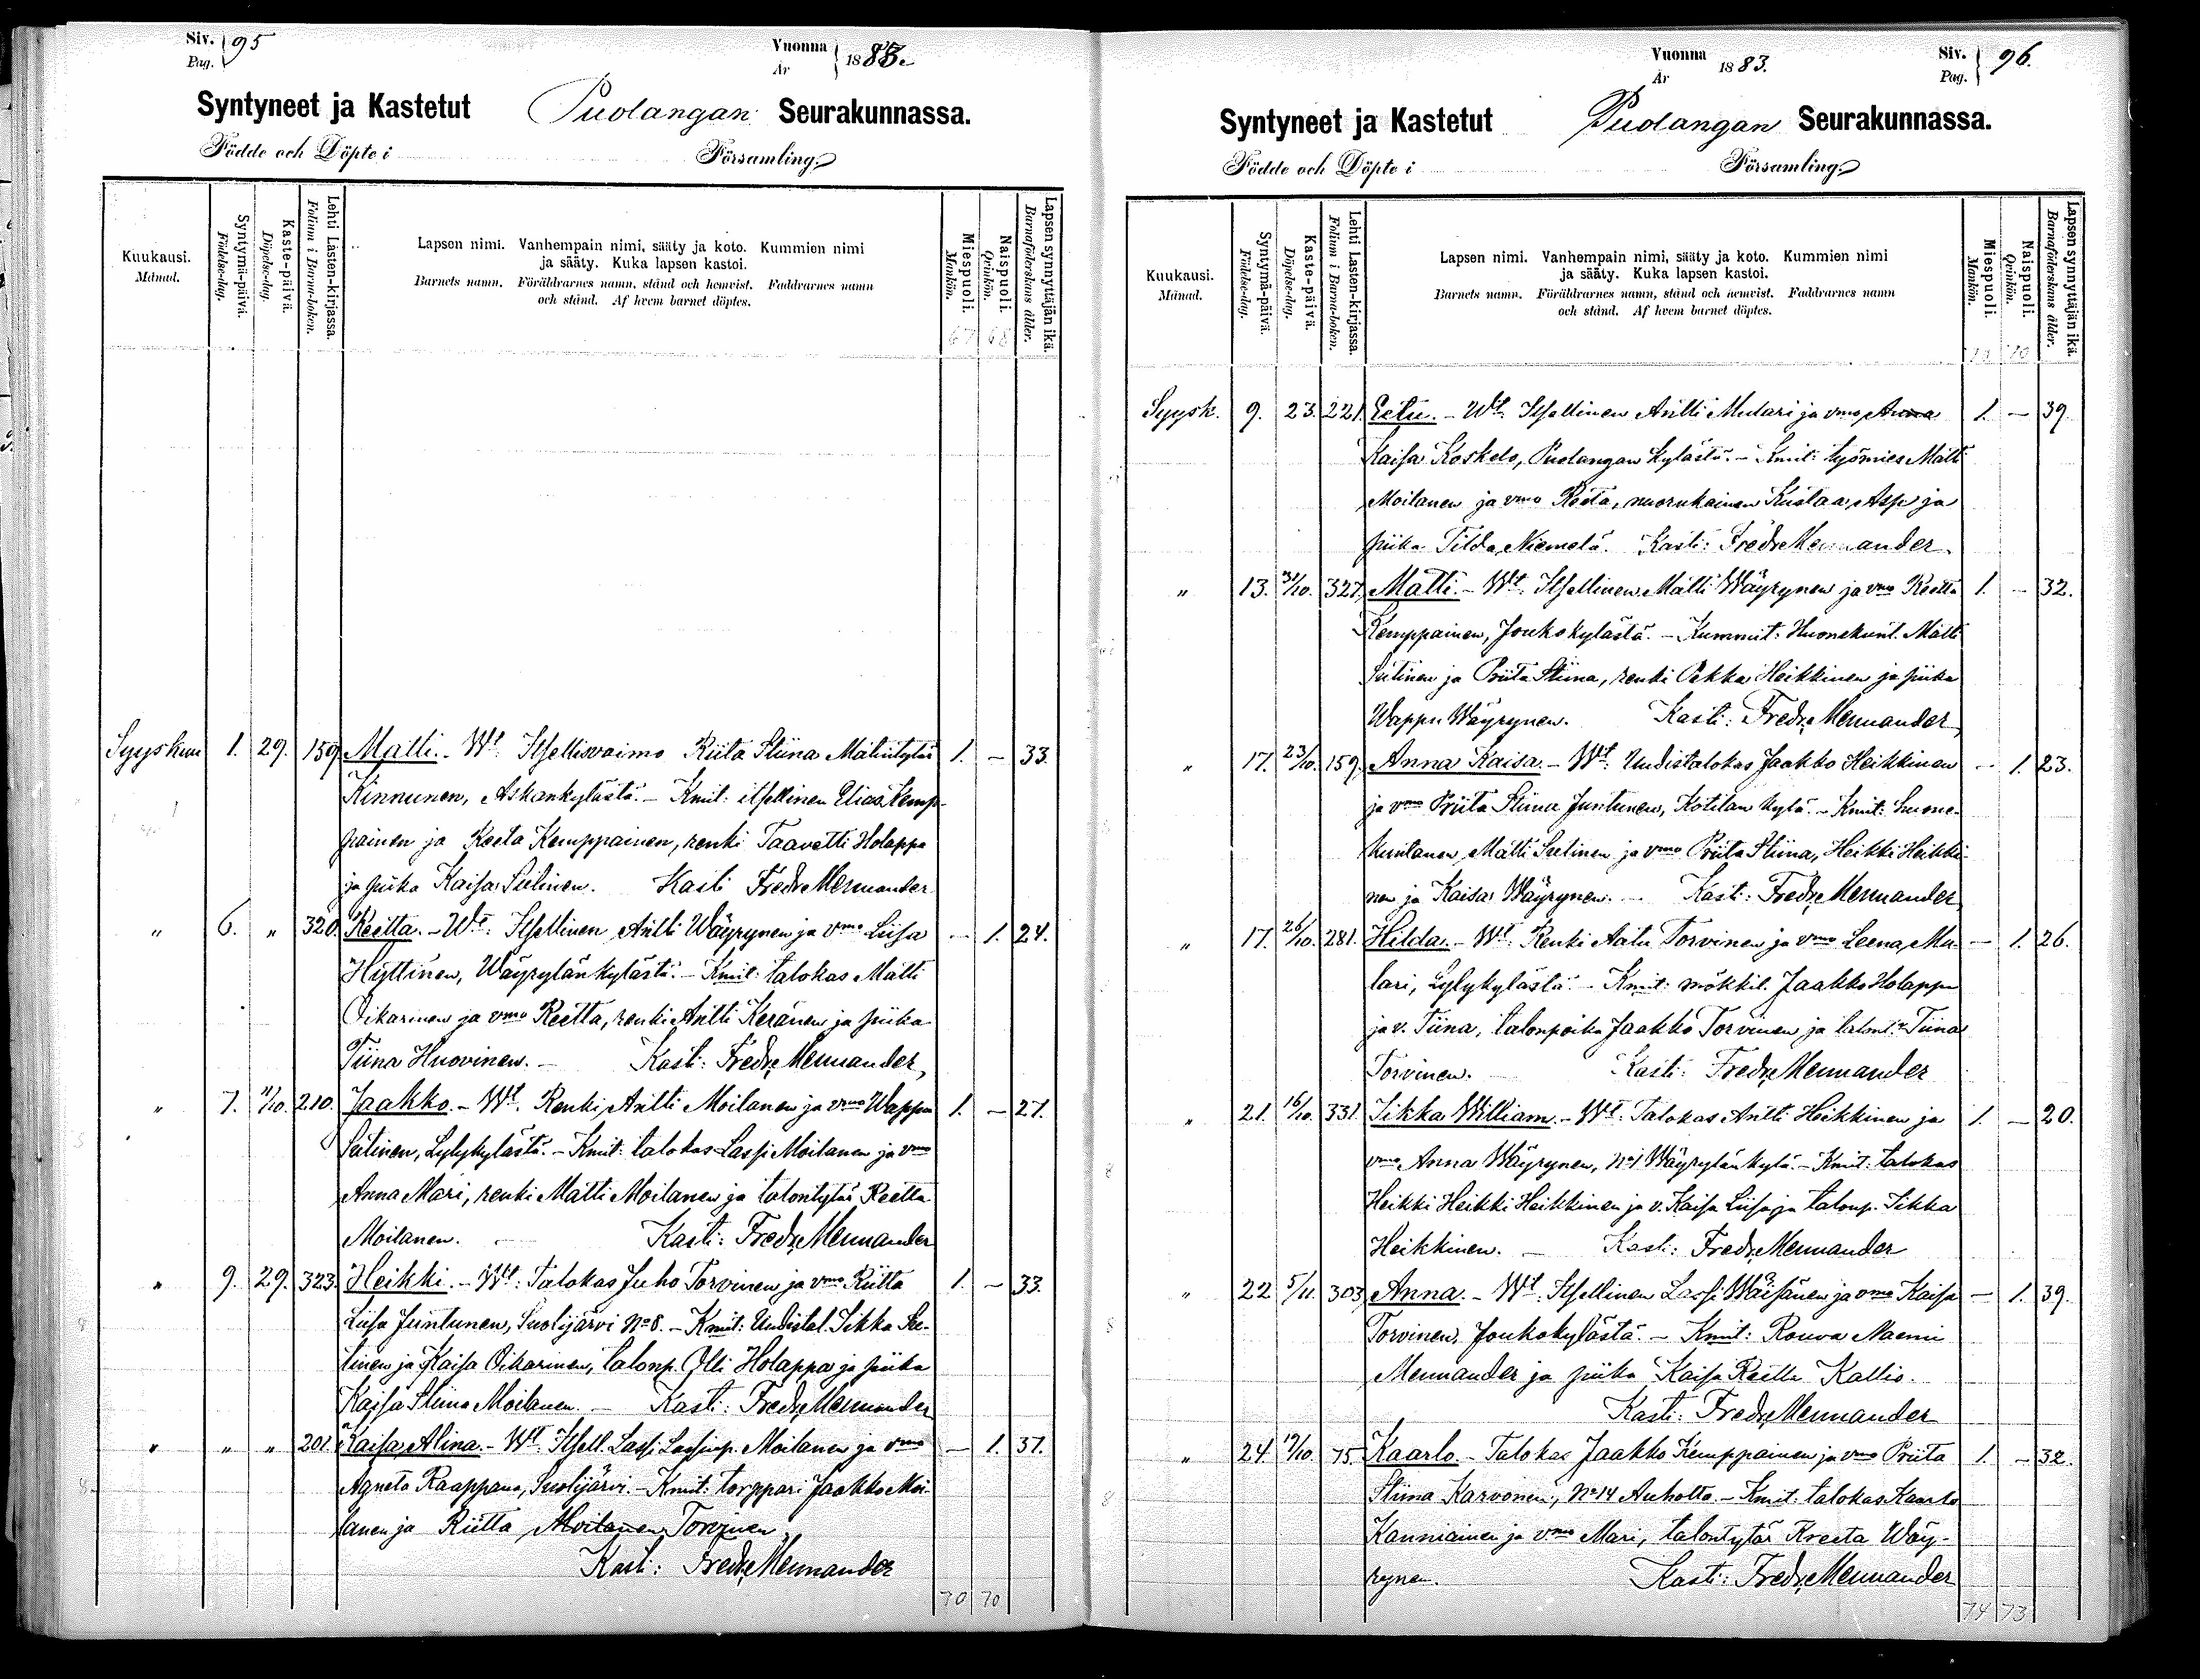 Siv. 95
Pag.
Vuonna 1883.
År
Syntyneet ja Kastetut Puolangan Seurakunnassa.
Födde och Döpte i Församling.
Kuukausi.
Månad.
Syntymä-päivä.
Födelse-dag.
Kaste-päivä.
Döpelse-dag.
Lehti Lasten-kirjassa.
Folium i Barna-boken.
Lapsen nimi. Vanhempain nimi, sääty ja koto. Kummien nimi
ja sääty. Kuka lapsen kastoi.
Barnets namn. Föräldrarnes namn, stånd och hemvist. Faddrarnes namn
och stånd. Af hvem barnet döptes.
Miespuoli.
Mankön.
Naispuoli.
Qvinkön.
Lapsen synnyttäjän ikä.
Barnaföderskans ålder.
67 68
Syyskuu 1. 29. 159. Matti. - Wt. Itsellisvaimo Riita Stiina Matintytär 1. - 33.
Kinnunen, Askankylästä. - Kmit: itsellinen Elias Kemp-
painen ja Reeta Kemppainen, renki Taavetti Holappa
ja piika Kaisa Seilinen. Kasti Fredr. Mennander
" 6. " 320. Reetta. - Wt: Itsellinen Antti Wäyrynen ja vmo Liisa - 1. 24.
Hyttinen, Wäyrylänkylästä. - Kmit: talokas Matti
Oikarinen ja vmo Reetta, renki Antti Keränen ja piika
Tiina Huovinen. - Kasti: Fredr. Mennander,
" 7. 11/10. 210. Jaakko. - Wt. Renki Antti Moilanen ja vmo Wappu 1. - 27.
Seilinen, Lylykylästä. - Kmit: talokas Lassi Moilanen ja vmo
Anna Mari, renki Matti Moilanen ja talontytär Reetta
Moilanen. Kasti: Fredr. Mennander
" 9. 29. 323. Heikki. - Wt: Talokas Juho Torvinen ja vmo Riitta 1. - 33.
Liisa Juntunen, Suolijärvi No 8. - Kmit: Uudistal. Sikka Sei-
linen ja Kaisa Oikarinen, talonp. Olli Holappa ja piika
Kaisa Stiina Moilanen. - Kasti: Fredr. Mennander
" " " 201. Kaisa Alina. - Wt. Itsell. Lassi Lassinp. Moilanen ja vmo - 1. 37.
Agneta Raappana, Suolijärvi. - Kmit: torppari Jaakko Moi-
lanen ja Riitta Moilanen Torvinen
Kasti: Fredr. Mennander
70 70
Vuonna 1883.
År
Siv. 96.
Pag.
Syntyneet ja Kastetut Puolangan Seurakunnassa.
Födde och Döpte i Församling.
Kuukausi.
Månad.
Syntymä-päivä.
Födelse-dag.
Kaste-päivä.
Döpelse-dag.
Lehti Lasten-kirjassa.
Folium i Barna-boken.
Lapsen nimi. Vanhempain nimi, sääty ja koto. Kummien nimi
ja sääty. Kuka lapsen kastoi.
Barnets namn. Föräldrarnes namn, stånd och hemvist. Faddrarnes namn
och stånd. Af hvem barnet döptes.
Miespuoli.
Mankön.
Naispuoli.
Qvinkön.
Lapsen synnyttäjän ikä.
Barnaföderskans ålder.
70 70
Syysk. 9. 23. 221. Eetu. - Wt. Itsellinen Antti Mulari ja vmo Anna 1. - 39.
Kaisa Koskelo, Puolangan kylästä. - Kmit: työmies Matti
Moilanen ja vmo Reeta, nuorukainen Kustaa Asp ja
piika Tilda Niemelä. Kasti: Fredr. Mennander.
" 13. 31/10. 327. Matti. - Wt. Itsellinen Matti Wäyrynen ja vmo Reetta 1. - 32.
Kemppainen, Joukokylästä. - Kummit: Huonekunt. Matti
Seilinen ja Priita Stiina, renki Pekka Heikkinen ja piika
Wappu Wäyrynen. Kasti: Fredr. Mennander
" 17. 23/10. 159. Anna Kaisa. - Wt: Uudistalokas Jaakko Heikkinen - 1. 23.
ja vmo Priita Stiina Juntunen, Kotilan kylä. - Kmit: huone-
kuntanen Matti Seilinen ja vmo Priita Stiina, Heikki Heikki-
nen ja Kaisa Wäyrynen. Kasti: Fredr. Mennander
" 17. 26/10. 281. Hilda. - Wt: Renki Aatu Torvinen ja vmo Leena Mu- - 1. 26.
lari, Lylykylästä. - Kmit: mökkil. Jaakko Holappa
ja v. Tiina, talonpoika Jaakko Torvinen ja talont:r Tiina
Torvinen. Kasti: Fredr. Mennander
" 21. 16/10. 331. Sikka William. - Wt: Talokas Antti Heikkinen ja 1. - 20.
vmo Anna Wäyrynen, No 1 Wäyrylänkylä. - Kmit: talokas
Heikki Heikki Heikkinen ja v. Kaisa Liisa ja talonp. Sikka
Heikkinen. - Kasti: Fredr. Mennander
" 22 5/11. 303. Anna. - Wt. Itsellinen Lassi Wäisänen ja vmo Kaisa - 1. 39.
Torvinen, Joukokylästä. - Kmit: Rouva Maemi
Mennander ja piika Kaisa Reetta Kallio.
Kasti: Fredr. Mennander
" 24. 19/10. 75. Kaarlo. - Talokas Jaakko Kemppainen ja vmo Priita 1. - 32.
Stiina Karvonen, No 14 Auhotta. - Kmit: talokas Kaarlo
Kanniainen ja vmo Mari, talontytär Kreeta Wäy-
rynen. Kasti: Fredr. Mennander
74 73